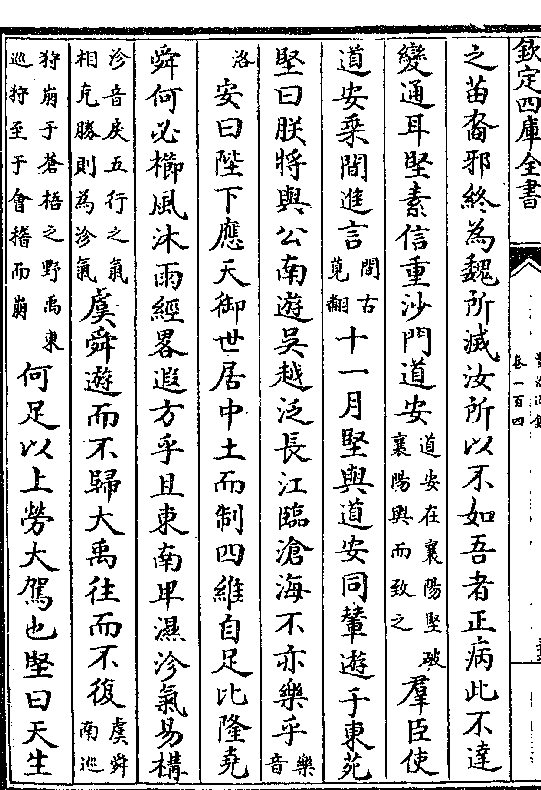 欽定四庫全書
卷一百四
之苗裔邪終為魏所滅汝所以不如吾者正病此不達
變通耳堅素信重沙門道安道安在襄陽堅破襄陽輿而致之羣臣使
道安乘間進言間古莧翻十一月堅與道安同輦遊于東苑
堅曰朕將與公南遊吳越泛長江臨滄海不亦樂乎樂音
洛安曰陛下應天御世居中土而制四維自足比隆堯
舜何必櫛風沐雨經畧遐方乎且東南卑濕沴氣易構
沴音戾五行之氣相克勝則為沴氣虞舜遊而不歸大禹往而不復虞舜南巡
狩崩于蒼梧之野禹東巡狩至于會稽而崩何足以上勞大駕也堅曰天生